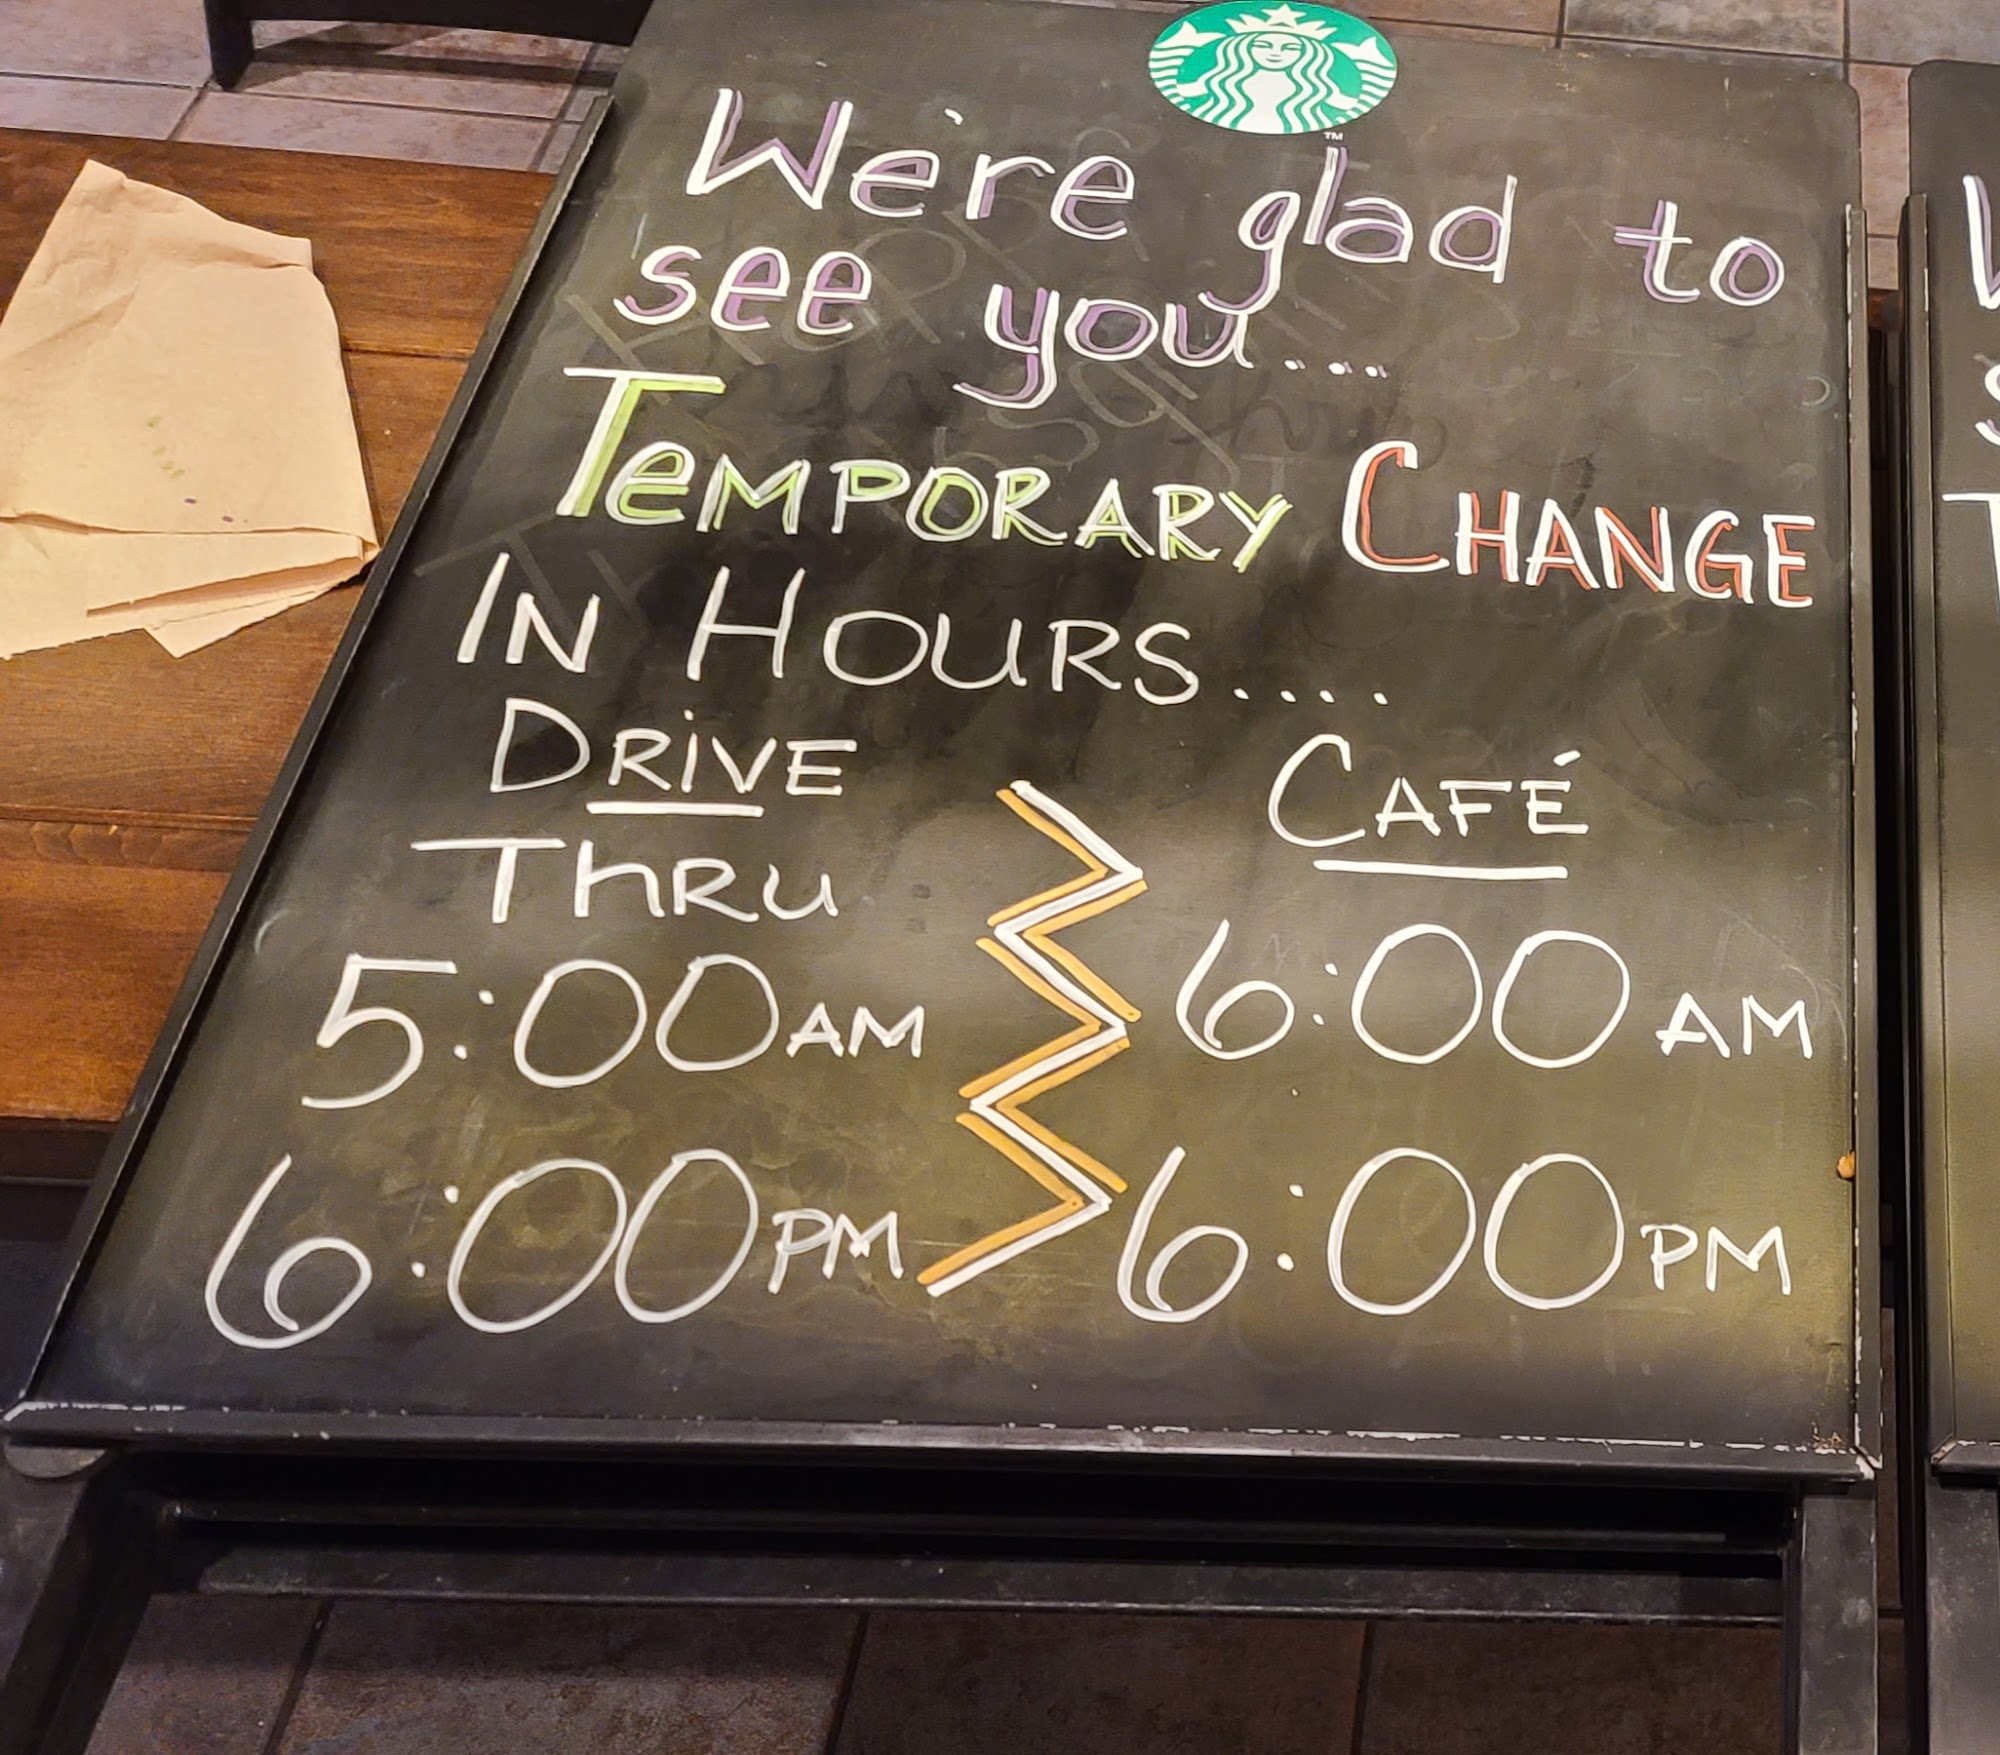 TM
We're glad to
see you....
TEMPORARY CHANGE
IN HOURS....
DRIVE
THRU
5:00 AM
6:00 PM
CAFÉ
6:00 AM
6:00 PM